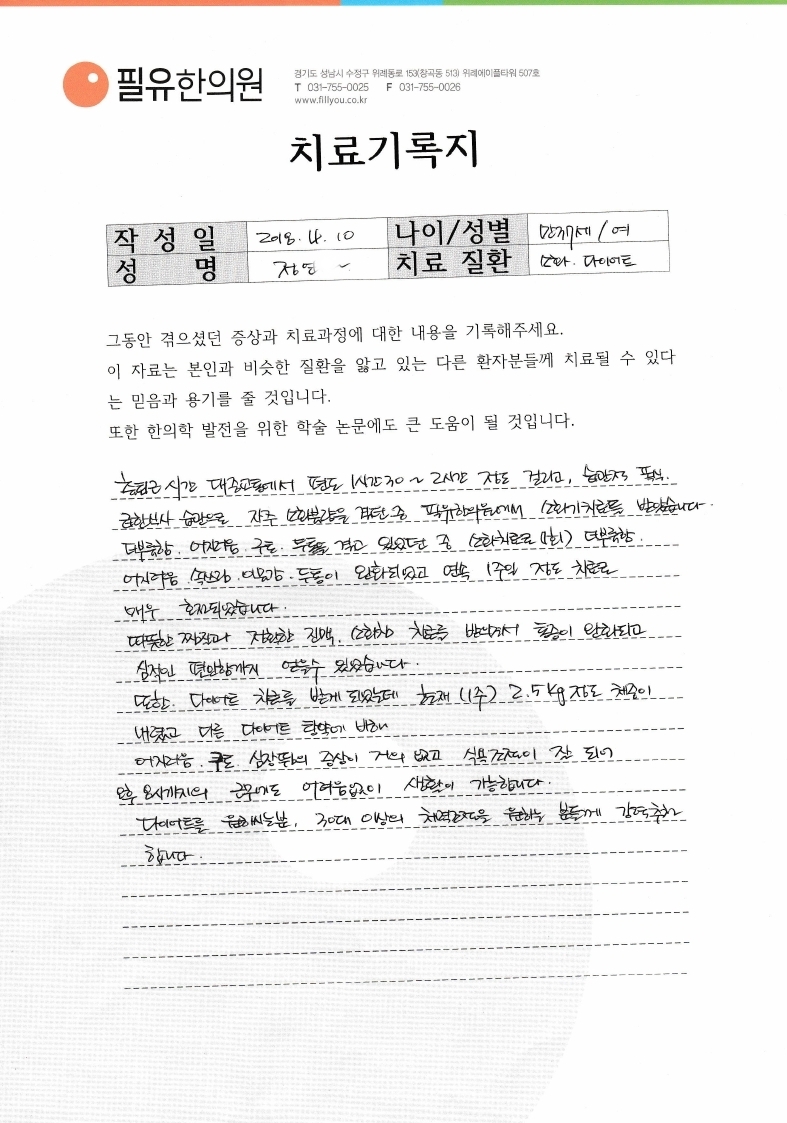 필유한의원
경기도 성남시 수정구 위례동로 153(창곡동 513) 위례에이플타워 507호
T 031-755-0025 F 031-755-0026
www.fillyou.co.kr
치료기록지
작 성 일 2018. 4. 10 나이/성별 만 세 / 여
성 명 정 치료 질환 소화. 다이어트
그동안 겪으셨던 증상과 치료과정에 대한 내용을 기록해주세요.
이 자료는 본인과 비슷한 질환을 앓고 있는 다른 환자분들께 치료될 수 있다
는 믿음과 용기를 줄 것입니다.
또한 한의학 발전을 위한 학술 논문에도 큰 도움이 될 것입니다.
출퇴근 시간 대중교통에서 편도 1시간30~2시간 정도 걸리고, 습관적 폭식.
급한식사 습관으로 자주 소화불량을 겪던 중 필유한의원에서 소화기치료를 받았습니다.
더부룩함. 어지러움. 구토. 두통을 겪고 있었던 중 소화치료로 (1회) 더부룩함.
어지러움. 속쓰림. 이물감. 두통이 완화되었고 연속 1주일 정도 치료로
매우 호전되었습니다.
따뜻한 찜질과 저환한 진맥, 소화침 치료를 받으면서 통증이 완화되고
심적인 편안함까지 얻을수 있었습니다.
또한. 다이어트 치료를 받게 되었는데 현재 (1주) 2.5kg 정도 체중이
내렸고 다른 다이어트 탕약에 비해
어지러움. 구토. 심장뛰는 증상이 거의 없고 식욕조절이 잘 되어
오후 8시까지의 근무에도 어려움없이 생활이 가능합니다.
다이어트를 원하시는분, 30대 이상의 체력조절을 원하는 분들께 강력추천
합니다.